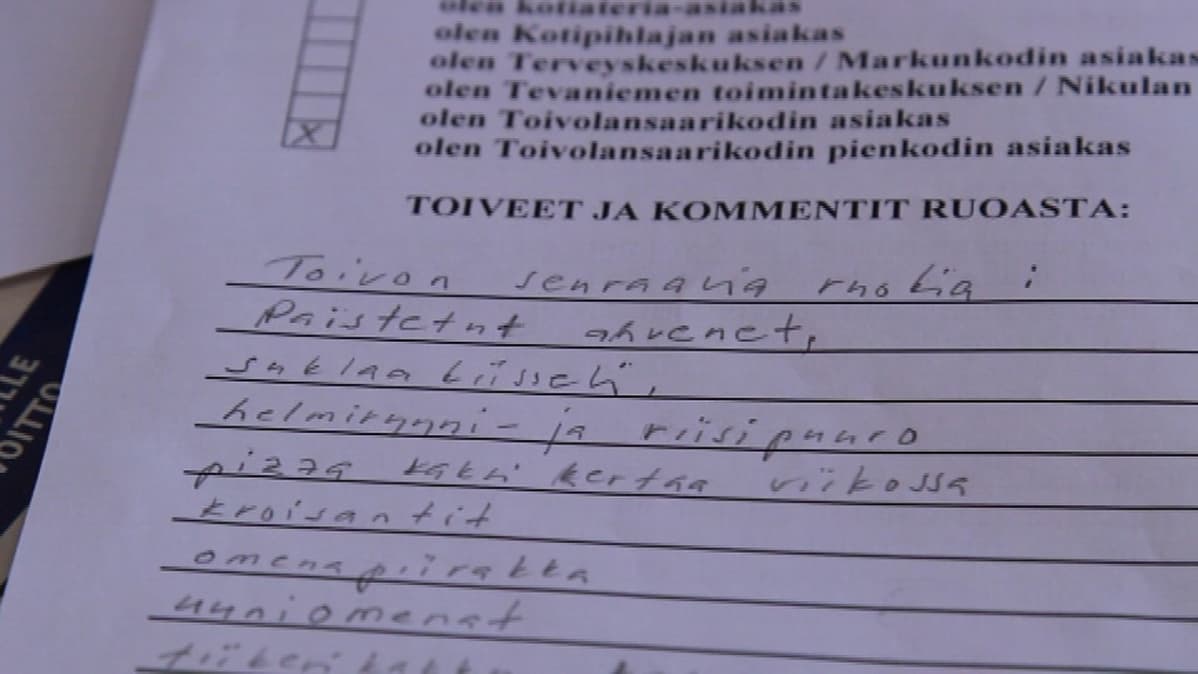 olen kotiateria-asiakas
olen Kotipihlajan asiakas
olen Terveyskeskuksen / Markunkodin asiakas
olen Tevaniemen toimintakeskuksen / Nikulan
olen Toivolansaarikodin asiakas
X
olen Toivolansaarikodin pienkodin asiakas
TOIVEET JA KOMMENTIT RUOASTA:
Toivon seuraavia ruokia :
Paistetut ahvenet,
suklaa kiisseli,
helmiryyni- ja riisipuuro
pizza kaksi kertaa viikossa
kroisantit
omenapiirakka
uuniomenat
tiikerikakku
LLE
VOITTO